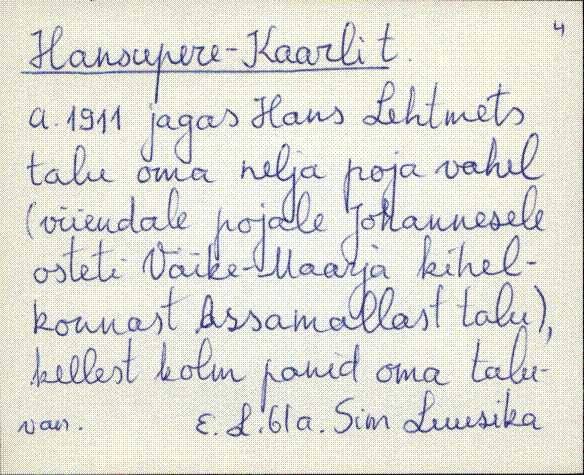 4
Hansupere-Kaarli t.
a. 1911 jagas Hans Lehtmets
talu oma nelja poja vahel
(viiendale pojale Johannesele
osteti Väike-Maarja kihel-
konnast Assamallast talu),
kellest kolm panid oma talu-
van. E. L. 61a. Sim Luusika